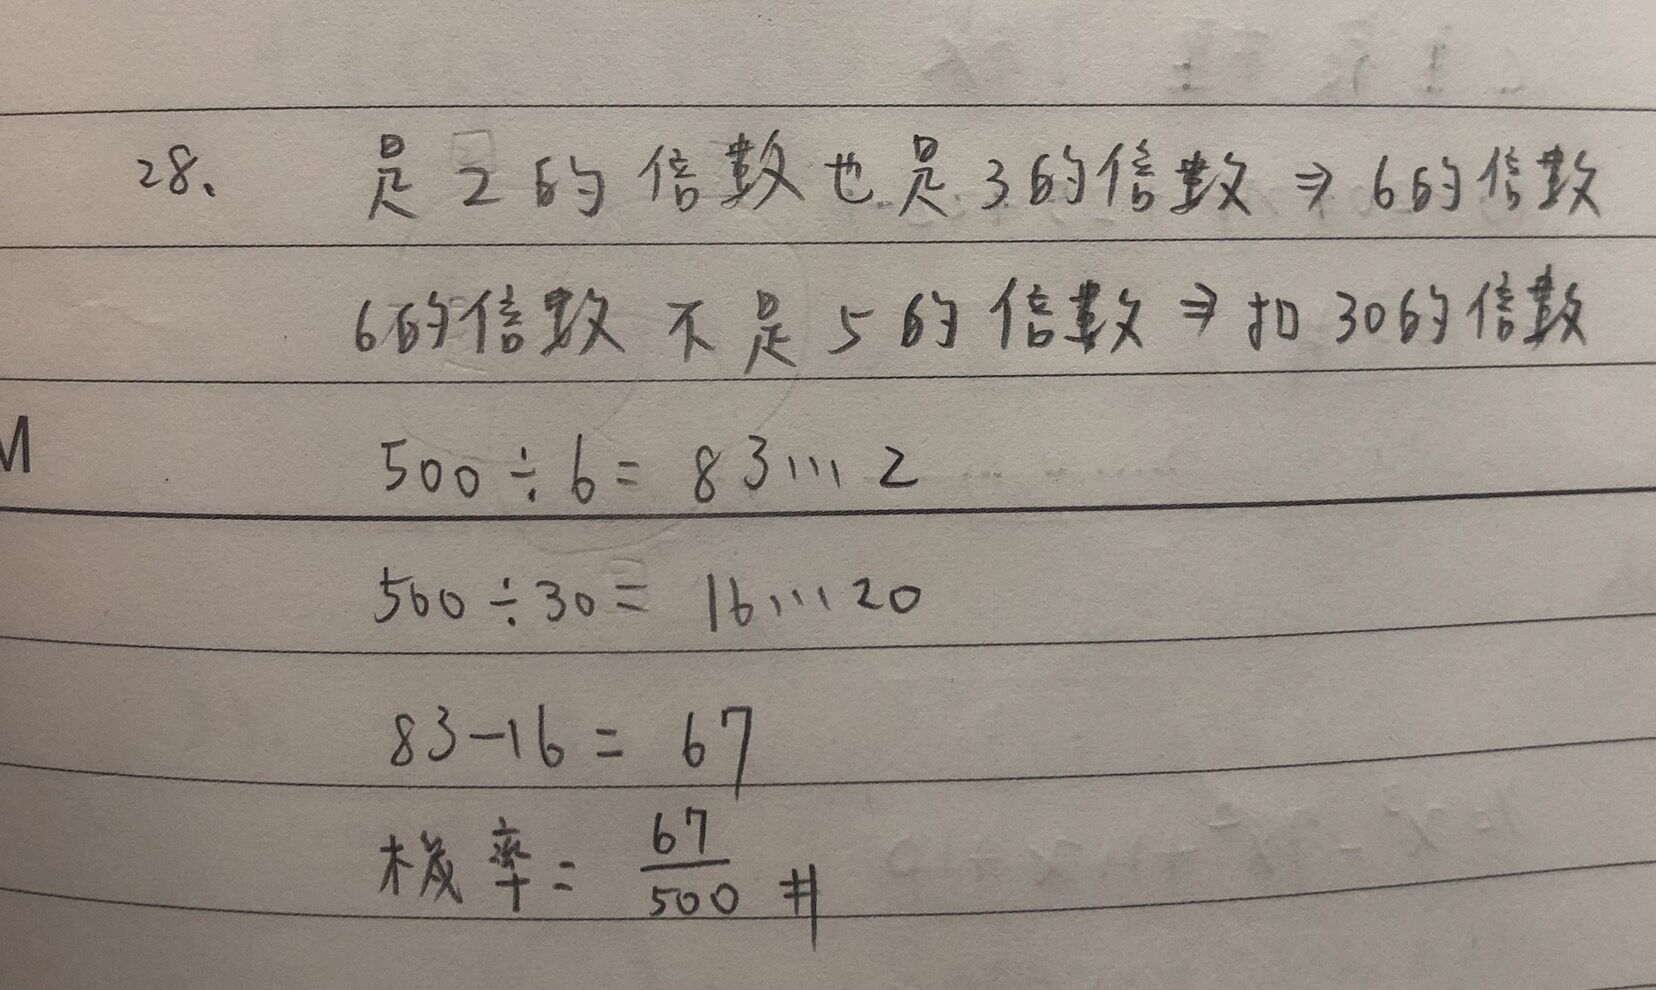 28、 是2的倍數也是3的倍數 ⇒ 6的倍數
6的倍數不是5的倍數 ⇒ 扣30的倍數
M
500÷6= 83…2
500÷30= 16…20
83-16= 67
機率= 67/500 #